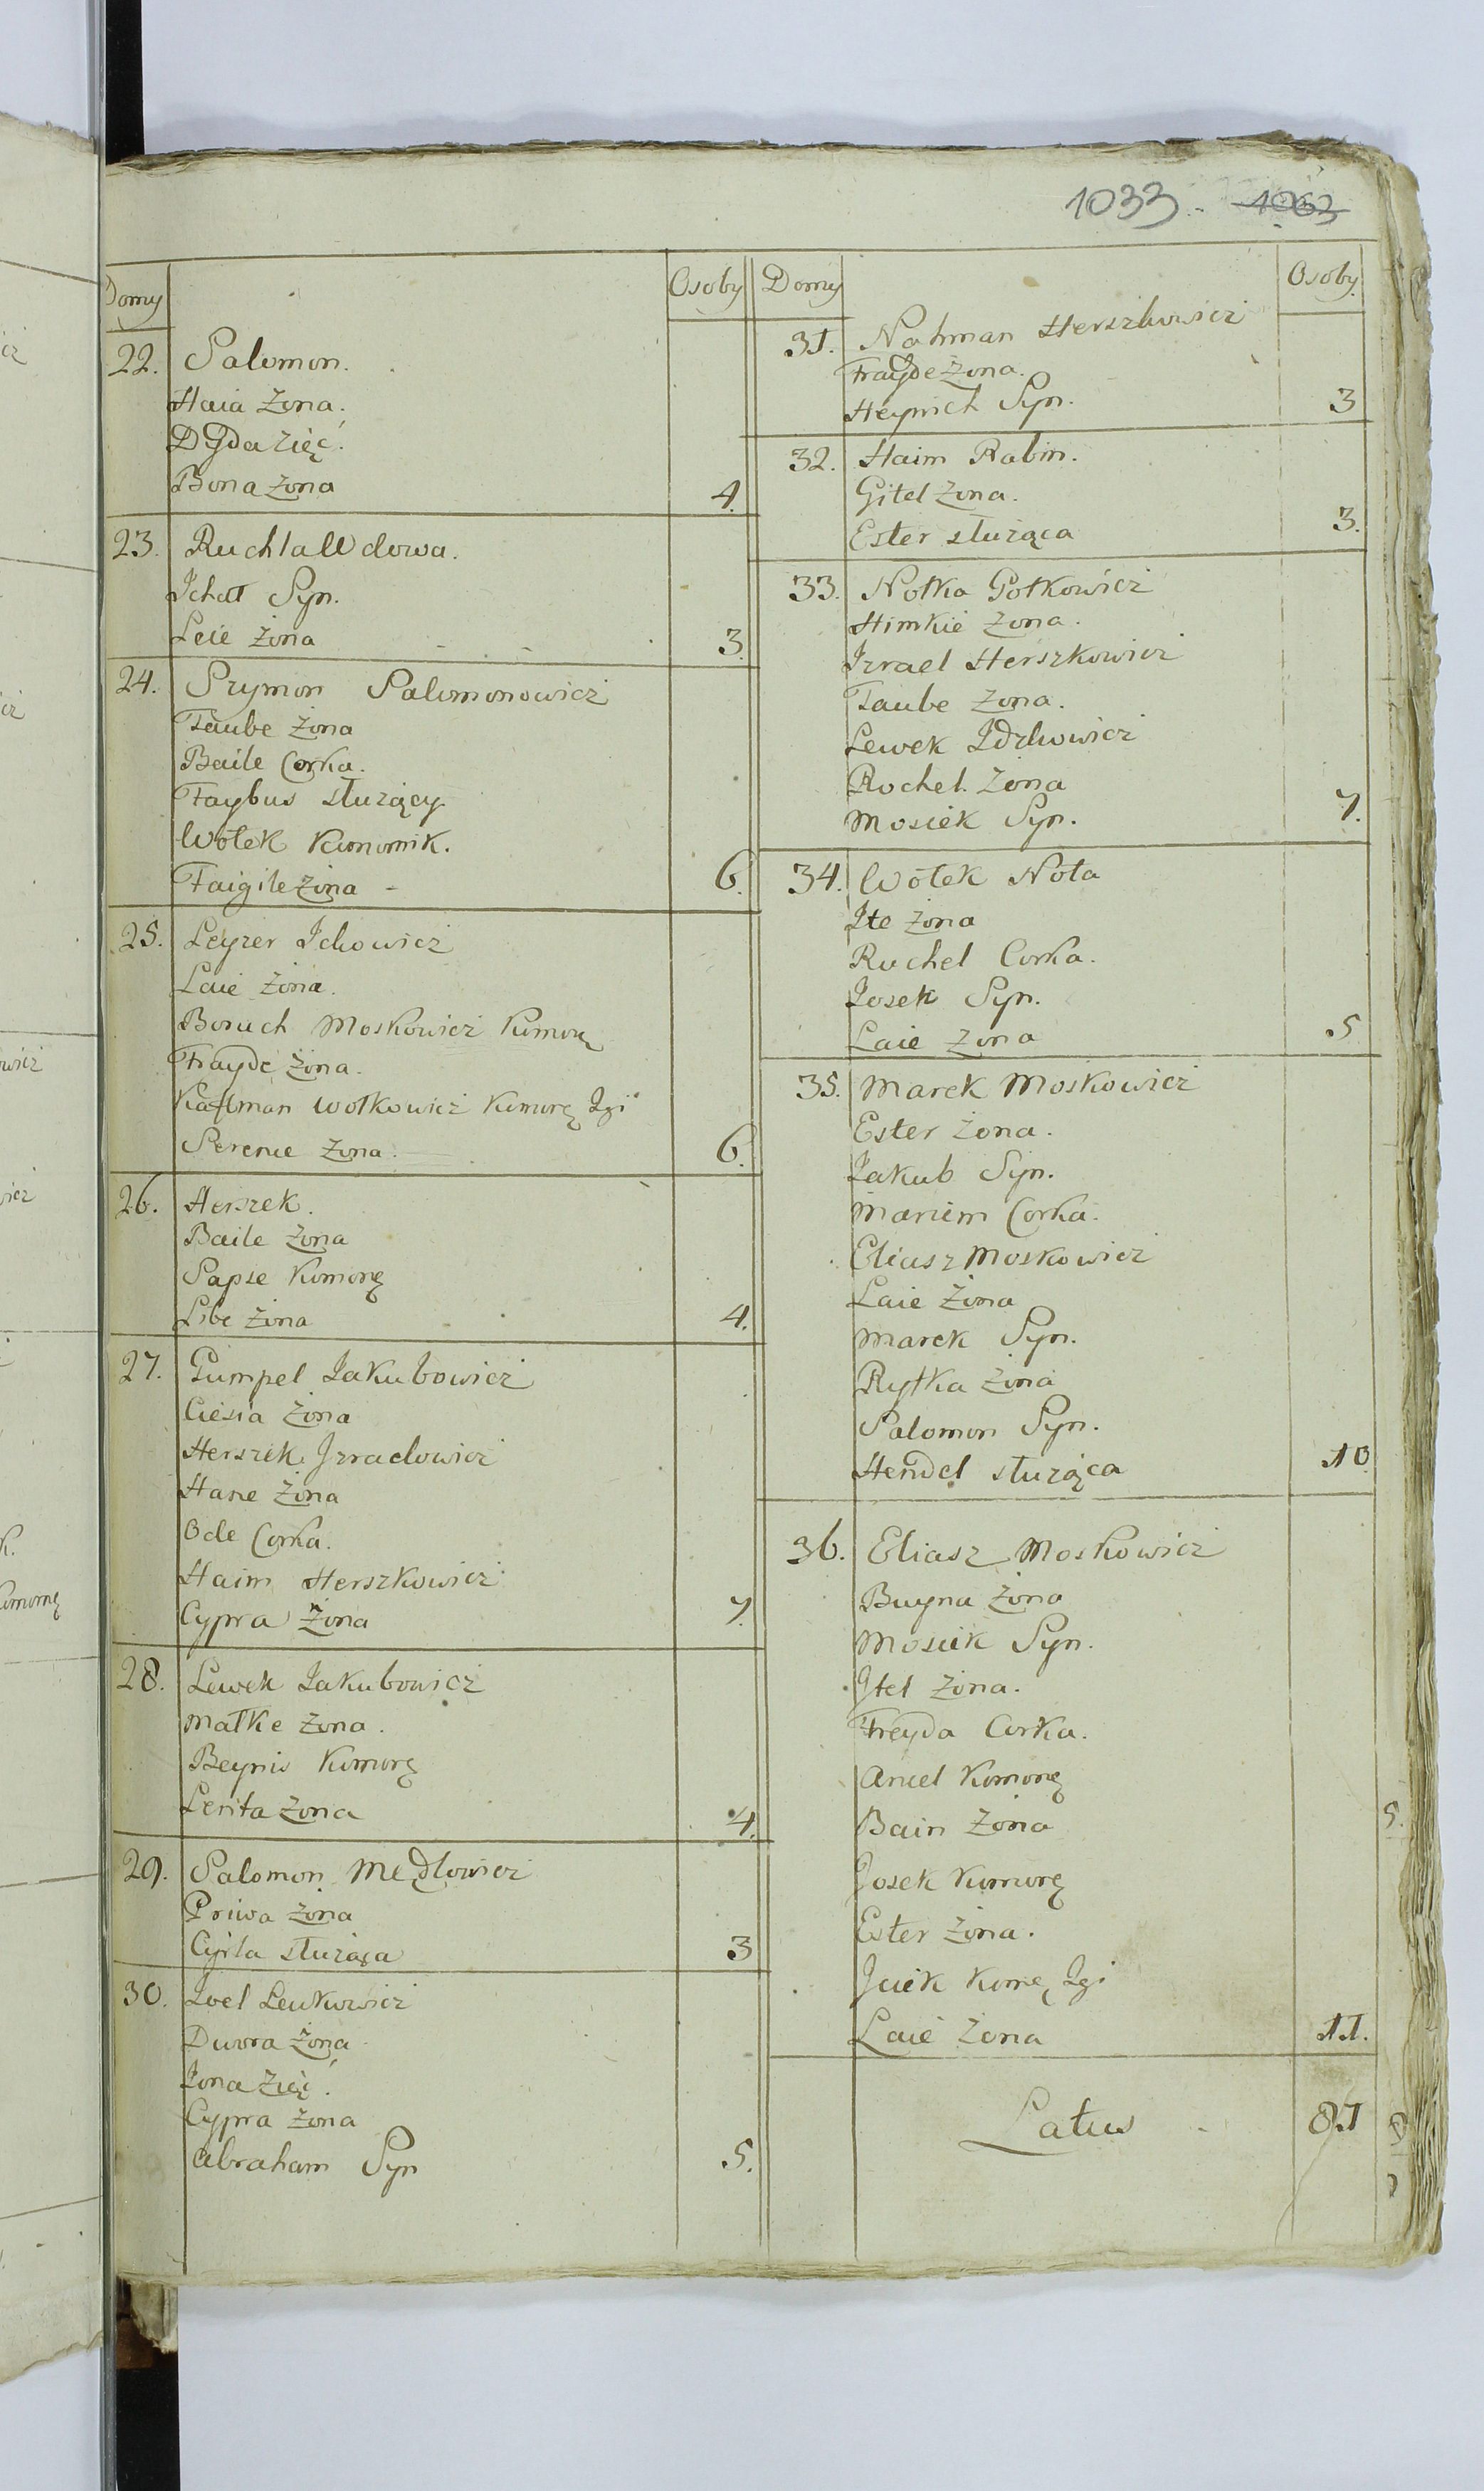 1033. 1063
Domy Osoby
22. Salomon.
Haia Żona.
Dyda zięć.
Bona Żona 4.
23. Ruchla Wdowa.
Ichel Syn.
Leie Żona 3.
24. Szymon Salomonowicz
Taube Żona
Baile Corka.
Faybus służący
Wolek Komornik.
Faigile Żona - 6.
25. Leyzer Ickowicz
Laie Żona.
Boruch Moskowicz Komorę
Frayde Żona.
Kalman Wolkowicz Komorę 2gi
Serenie Żona. 6.
26. Herszek.
Baile Żona
Sapse Komorę
Libe Żona 4.
27. Gumpel Jakubowicz
Ciesia Żona
Herszek Izraelowicz
Hane Żona
Ode Corka.
Haim Herszkowicz
Cypra Żona 7.
28. Lewek Jakubowicz
Małke Żona.
Beynis Komorę
Lerita Żona 4.
29. Salomon Mędlowicz
Priwa Żona
Cyrla służąca 3
30. Joel Lewkowicz
Dwora Żona
Jona Zięć.
Cypra Żona
Abraham Syn 5.
Domy Osoby
31. Nahman Herszkowicz
Frayde Żona.
Heynich Syn. 3
32. Haim Rabin.
Gitel Żona.
Ester służąca 3.
33. Notka Gotkowicz
Himkie Żona.
Izrael Herszkowicz
Taube Żona.
Lewek Idzkowicz
Rochel Żona
Mosiek Syn. 7.
34. Wolek Nota
Ite Żona
Ruchel Corka.
Josek Syn.
Laie Żona 5
35. Marek Moskowicz
Ester Żona.
Jakub Syn.
Mariem Corka.
Eliasz Moskowicz
Laie Żona
Marek Syn.
Rytka Żona
Salomon Syn.
Hendel służąca 10.
36. Eliasz Moskowicz
Buyna Żona
Mosiek Syn.
Itel Żona.
Freyda Corka.
Ancel Komorę
Bain Żona
Josek Komorę
Ester Żona.
Icik Komę 2gi
Laie Żona 11.
Latus 81